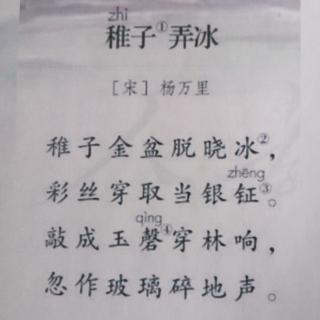 zhì
稚子①弄冰
[宋] 杨万里
稚子金盆脱晓冰②，
zhēng
彩丝穿取当银钲③。
qìng
敲成玉磬④穿林响，
忽作玻璃碎地声。